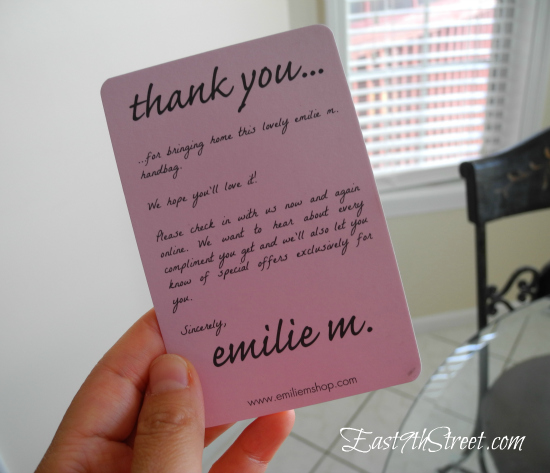 thank you...
...for bringing home this lovely emilie m.
handbag.
We hope you'll love it!
Please check in with us now and again
online. We want to hear about every
compliment you get and we'll also let you
know of special offers exclusively for
you.
Sincerely,
emilie m.
www.emiliemshop.com
East9thStreet.com